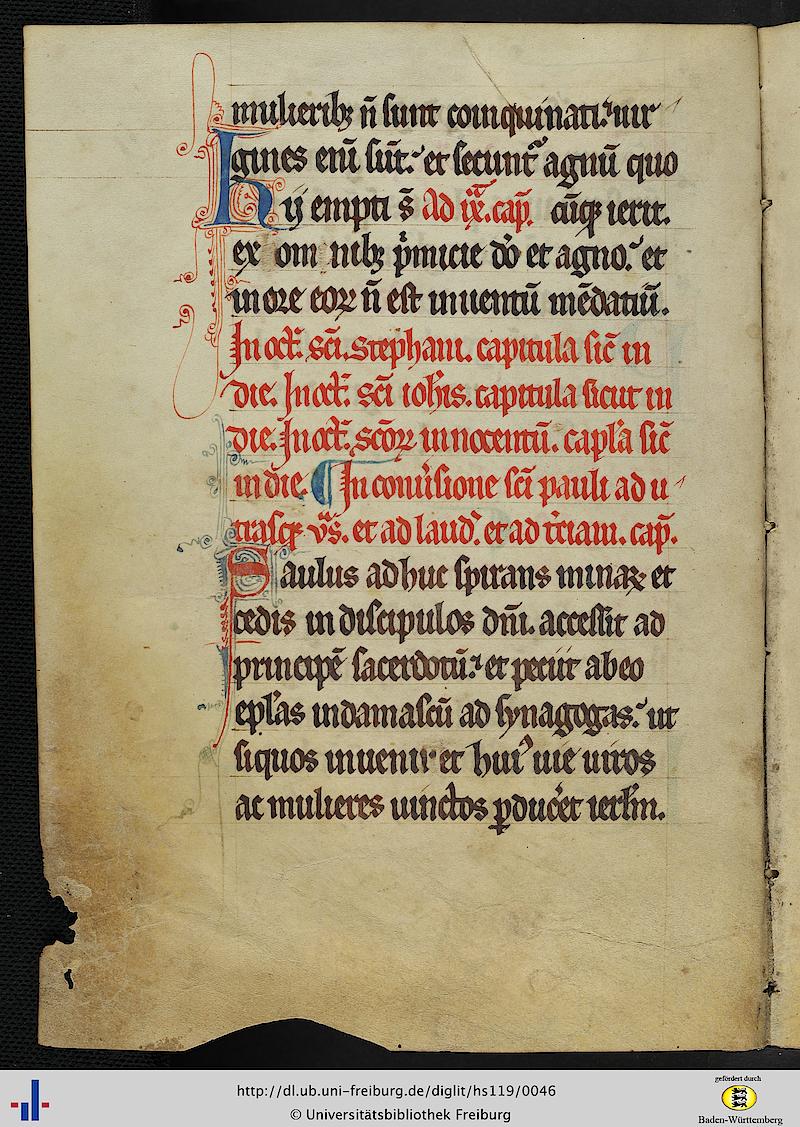 mulieribꝫ n̄ sunt coinquinati. uir
gines em̄ sūt. et secunt᷑ agnū quo
hij empti s̄ Ad ix. cap̄. cūq ierit.
ex om nibꝫ p̄micie dō et agno. et
in ore eoꝝ n̄ est inuentū mēdatiū.
In oct̄. sc̄i. Stephani. capitula sic̄ in
die. In oct̄. sc̄i ioh̄is. capitula sicut in
die. In oct̄. sc̄oꝝ innocentū. capl̄a sic̄
in die. ¶ In conu̓sione sc̄i pauli ad u
trasq v̄s. et ad laud̓. et ad t̓ciam. cap̄.
Saulus adhuc spirans minaꝝ et
cedis in discipulos dn̄i. accessit ad
principē sacerdotū. et peciit ab eo
epl̄as in damascū ad synagogas. ut
siquos inuenir et hui᷒ uie uiros
ac mulieres uinctos ꝑduc̓et ierl̄m.
http://dl.ub.uni-freiburg.de/diglit/hs119/0046
© Universitätsbibliothek Freiburg
gefördert durch
Baden-Württemberg